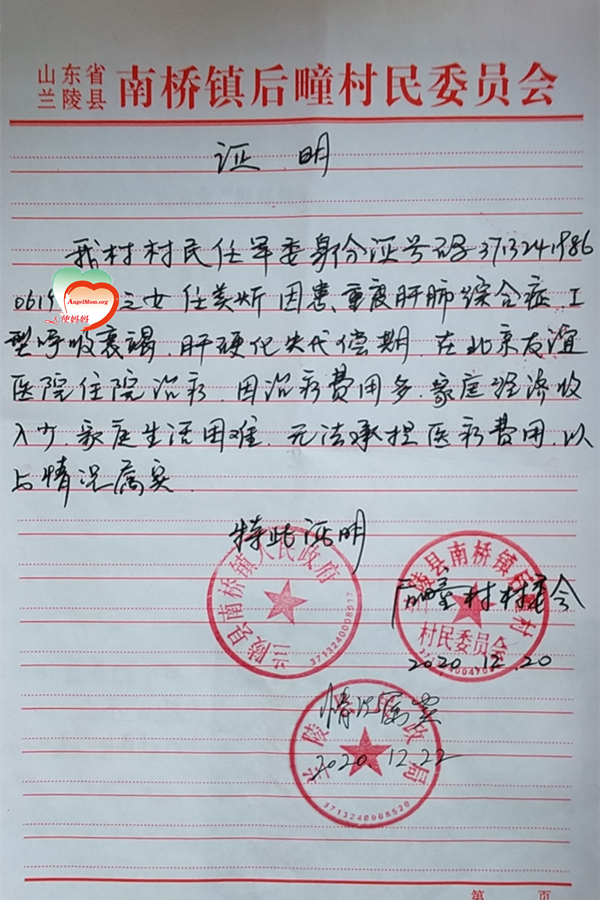 山东省
兰陵县
南桥镇后疃村民委员会
证 明
我村村民任军委身份证号码3713241986
0619 之女任美炘因患重度肝肺综合症、I
型呼吸衰竭、肝硬化失代偿期、在北京友谊
医院住院治疗、因治疗费用多、家庭经济收
入少、家庭生活困难、无法承担医疗费用、以
上情况属实、
特此证明
AngelMom.org
天使妈妈
兰陵县南桥镇人民政府
3713240008517
后疃村村委会
兰陵县南桥镇后疃村
村民委员会
2020.12.20
情况属实
2020.12.22
兰陵县民政局
3713240008520
第 页